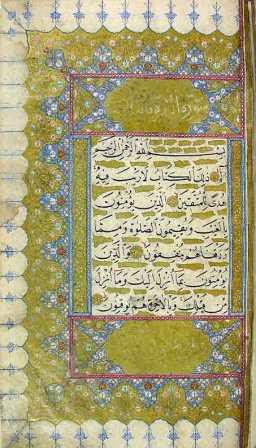 سورة
بسم الله الرحمن الرحيم
الم ذلك الكتاب لا ريب فيه
هدى للمتقين الذين يؤمنون
بالغيب ويقيمون الصلوة ومما
رزقناهم ينفقون والذين
يؤمنون بما انزل اليك وما انزل
من قبلك وبالآخرة هم يوقنون